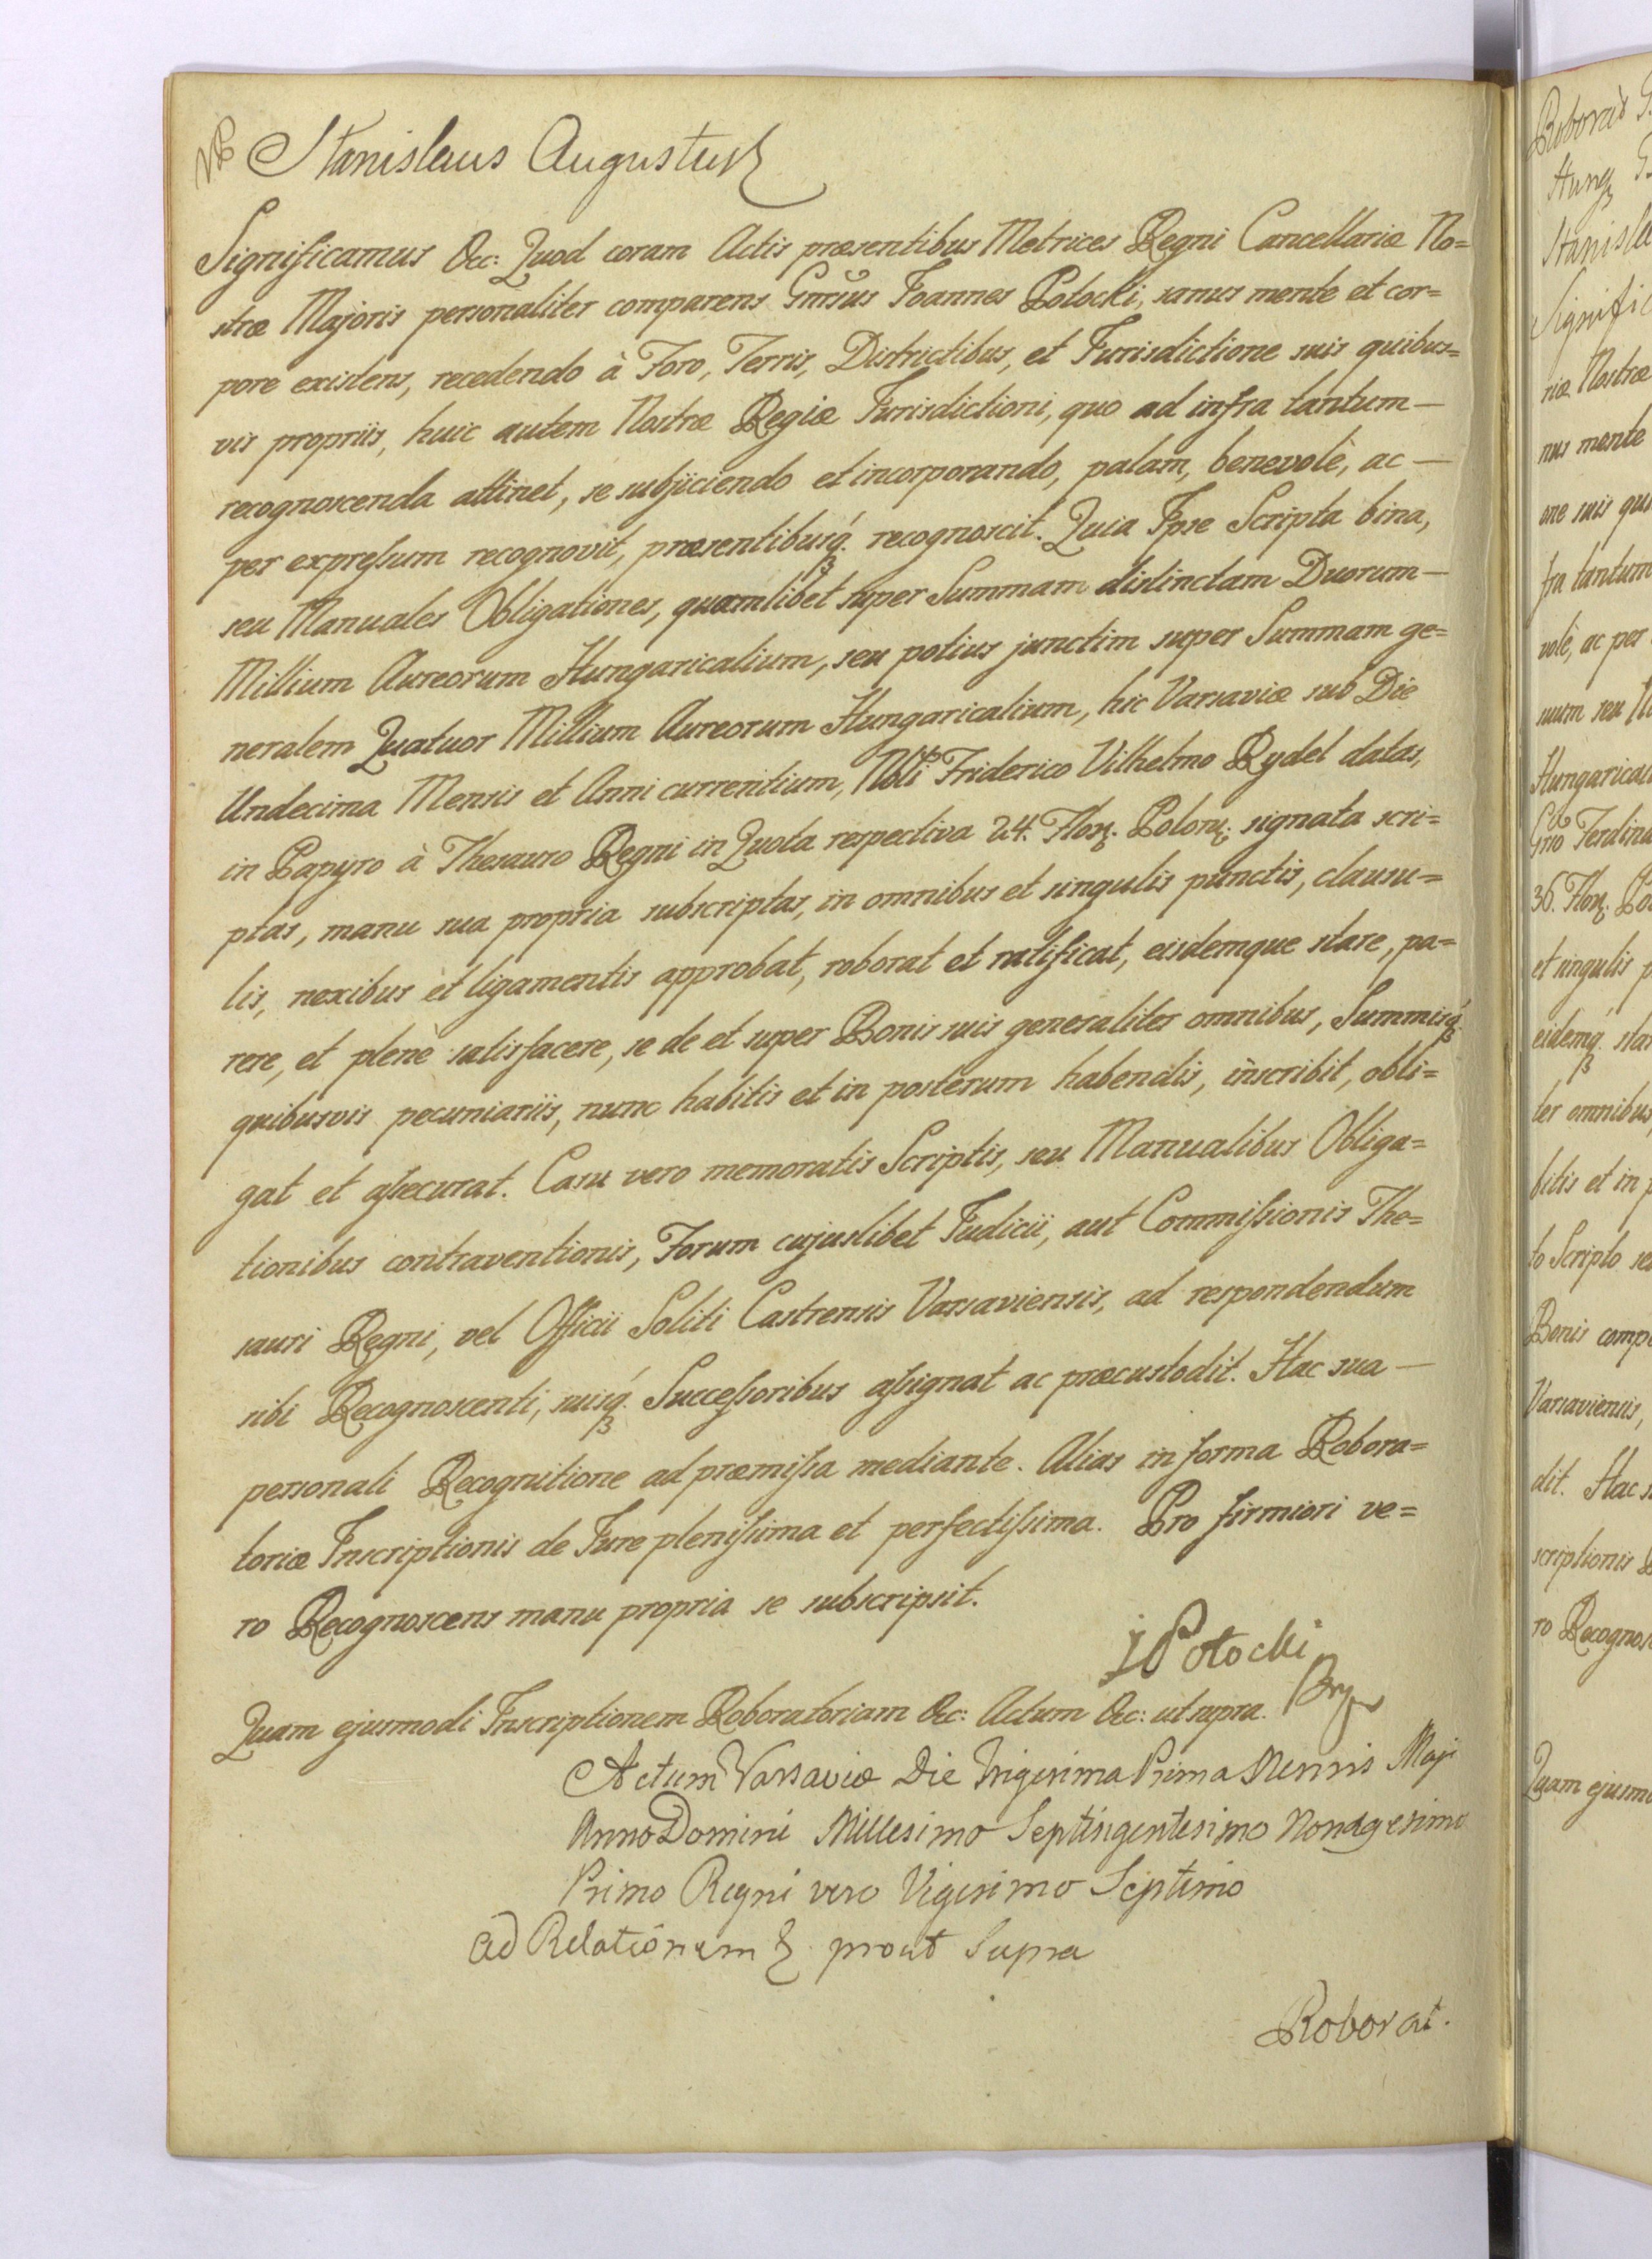 Stanislaus Augustus
Significamus &c: Quod coram Actis præsentibus Metrices Regni Cancellariæ No=
stræ Majoris personaliter comparens Gnrsus Joannes Potocki, sanus mente et cor=
pore existens, recedendo à Foro, Terris, Districtibus, et Jurisdictione suis quibus=
vis propriis, huic autem Nostræ Regiæ Jurisdictioni, quo ad infra tantum—
recognoscenda attinet, se subjiciendo et incorporando, palam, benevolè, ac—
per expressum recognovit, præsentibusq. recognoscit. Quia Ipse Scripta bina,
seu Manuales Obligationes, quamlibet super Summam distinctam Duorum—
Millium Aureorum Hungaricalium, seu potius junctim super Summam ge=
neralem Quatuor Millium Aureorum Hungaricalium, hic Varsaviæ sub Die
Undecima Mensis et Anni currentium, Nbli Friderico Vilhelmo Rydel datas,
in Papyro à Thesauro Regni in Quota respectiva 24. Flor. Polon. signata scri=
ptas, manu sua propria subscriptas, in omnibus et singulis punctis, clausu=
lis, nexibus et ligamentis approbat, roborat et ratificat, eisdemque stare, pa=
rere, et plenè satisfacere, se de et super Bonis suis generaliter omnibus, Summisq.
quibusvis pecuniariis, nunc habitis et in posterum habendis, inscribit, obli=
gat et assecurat. Casu vero memoratis Scriptis, seu Manualibus Obliga=
tionibus contraventionis, Forum cujuslibet Judicii, aut Commissionis The=
sauri Regni, vel Officii Soliti Castrensis Varsaviensis, ad respondendum
sibi Recognoscenti, suisq. Successoribus assignat ac præcustodit. Hac sua—
personali Recognitione ad præmissa mediante. Alias in forma Robora=
toriæ Inscriptionis de Jure plenissima et perfectissima. Pro firmiori ve=
ro Recognoscens manu propria se subscripsit.
J Potocki
Quam ejusmodi Inscriptionem Roboratoriam &c: Actum &c: ut supra.
Actum Varsaviæ Die Trigesima Prima Mensis Maji
Anno Domini Millesimo Septingentesimo Nonagesimo
Primo Regni vero Vigesimo Septimo
ad Relationem & prout Supra
Roborat.
Roborat G.
Hung.
Stanisla
Signific
riæ Nostræ
nus mente
one suis qui
fra tantum
volè, ac per
suum seu
Hungarical
Gso Ferdina
36. Flor. Po
et singulis p
eidemq. star
ter omnibus,
bitis et in p
to Scripto se
Bonis comp
Varsaviensis,
dit. Hac s
scriptionis
ro Recognos
Quam ejusmo